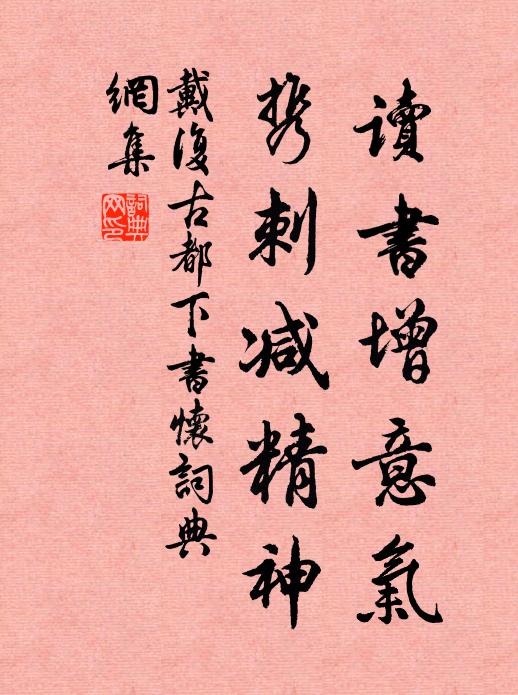 讀書增意氣
携刺減精神
戴復古都下書懷詞典
網集
詞典
网印